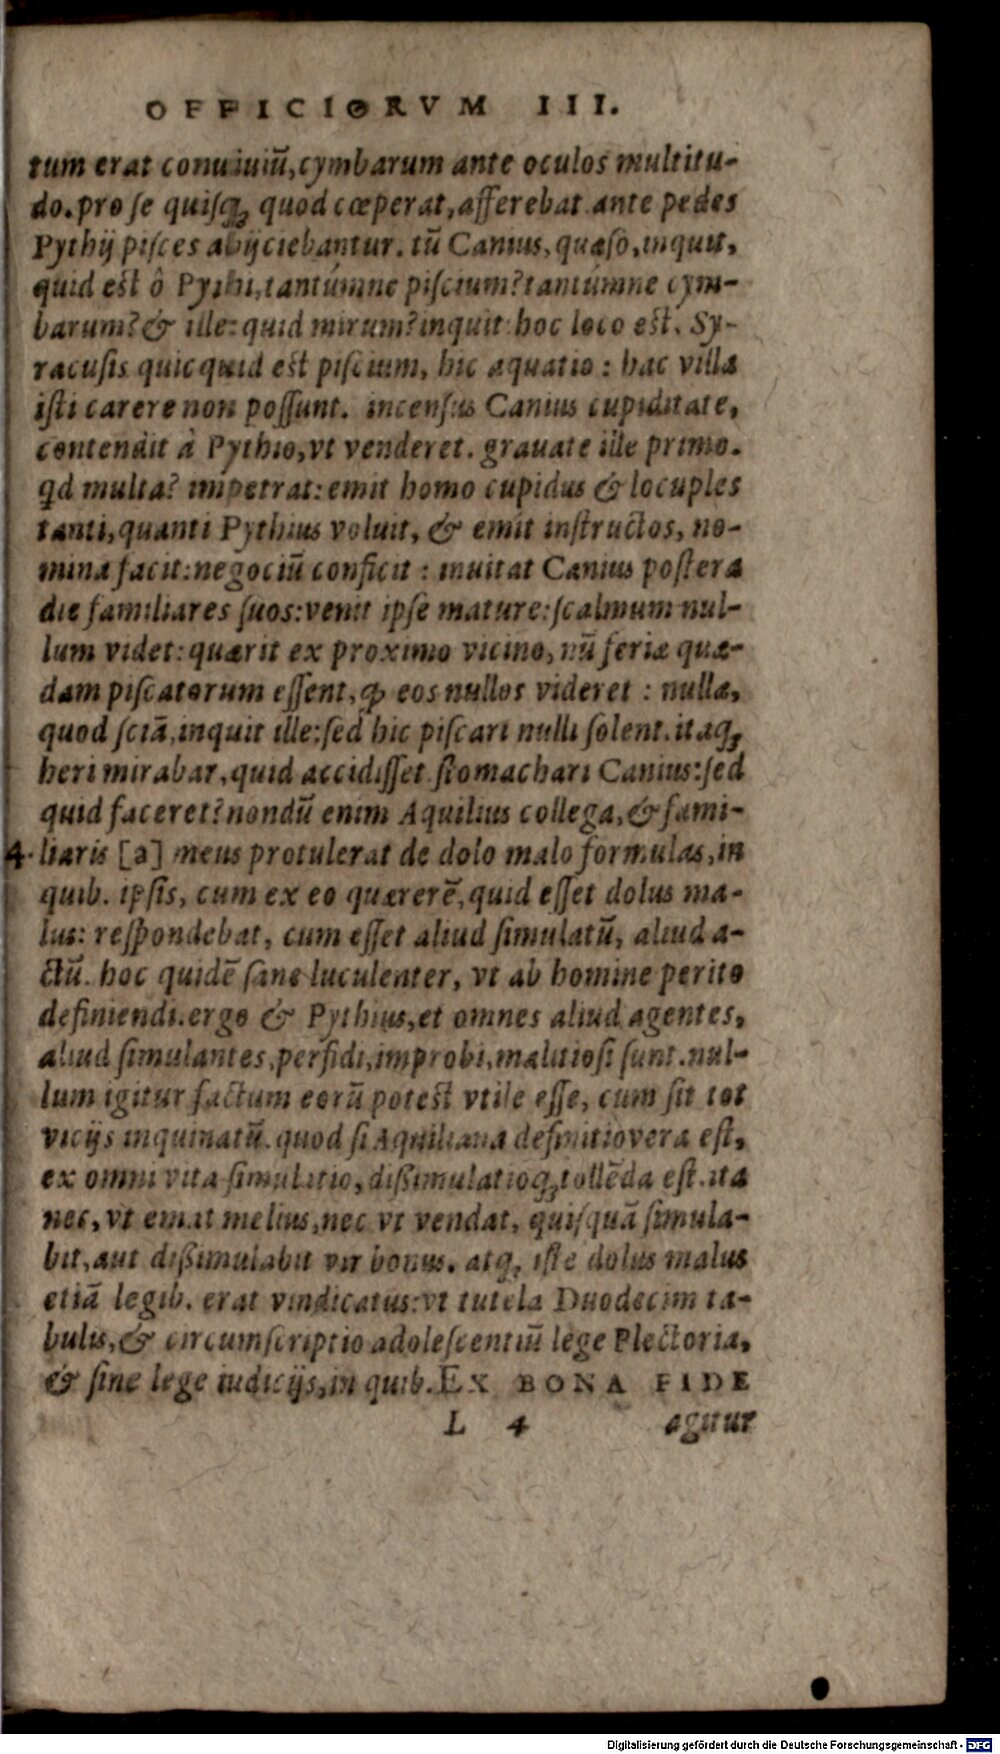 OFFICIORVM III.
tum erat conuiuiũ, cymbarum ante oculos multitu-
do. pro se quisq; quod cœperat, afferebat. ante pedes
Pythij pisces abijciebantur. tũ Canius, quæso, inquit,
quid est ô Pythi, tantúmne piscium? tantúmne cym-
barum? & ille: quid mirum? inquit: hoc loco est. Sy-
racusis quicquid est piscium, hic aquatio: hac villa
isti carere non possunt. incensus Canius cupiditate,
contendit à Pythio, vt venderet. grauate ille primo.
qd multa? impetrat: emit homo cupidus & locuples
tanti, quanti Pythius voluit, & emit instructos, no-
mina facit: negociũ conficit: inuitat Canius postera
die familiares suos: venit ipse mature: scalmum nul-
lum videt: quærit ex proximo vicino, nũ feriæ quæ-
dam piscatorum essent, ꝙ eos nullos videret: nullæ,
quod sciã, inquit ille: sed hic piscari nulli solent. itaq;
heri mirabar, quid accidisset. stomachari Canius: sed
quid faceret? nondũ enim Aquilius collega, & fami-
4. liaris [a] meus protulerat de dolo malo formulas, in
quib. ipsis, cum ex eo quærerẽ, quid esset dolus ma-
lus: respondebat, cum esset aliud simulatũ, aliud a-
ctũ. hoc quidẽ sane luculenter, vt ab homine perito
definiendi. ergo & Pythius, et omnes aliud agentes,
aliud simulantes, perfidi, improbi, malitiosi sunt. nul-
lum igitur factum eorũ potest vtile esse, cum sit tot
vicijs inquinatũ. quod si Aquiliana definitio vera est,
ex omni vita simulatio, dißimulatioq; tollẽda est. ita
nec, vt emat melius, nec vt vendat, quisquã simula-
bit, aut dißimulabit vir bonus. atq; iste dolus malus
etiã legib. erat vindicatus: vt tutela Duodecim ta-
bulis, & circumscriptio adolescentiũ lege Plectoria,
& sine lege iudicijs, in quib. EX BONA FIDE
L 4 agitur
Digitalisierung gefördert durch die Deutsche Forschungsgemeinschaft - DFG